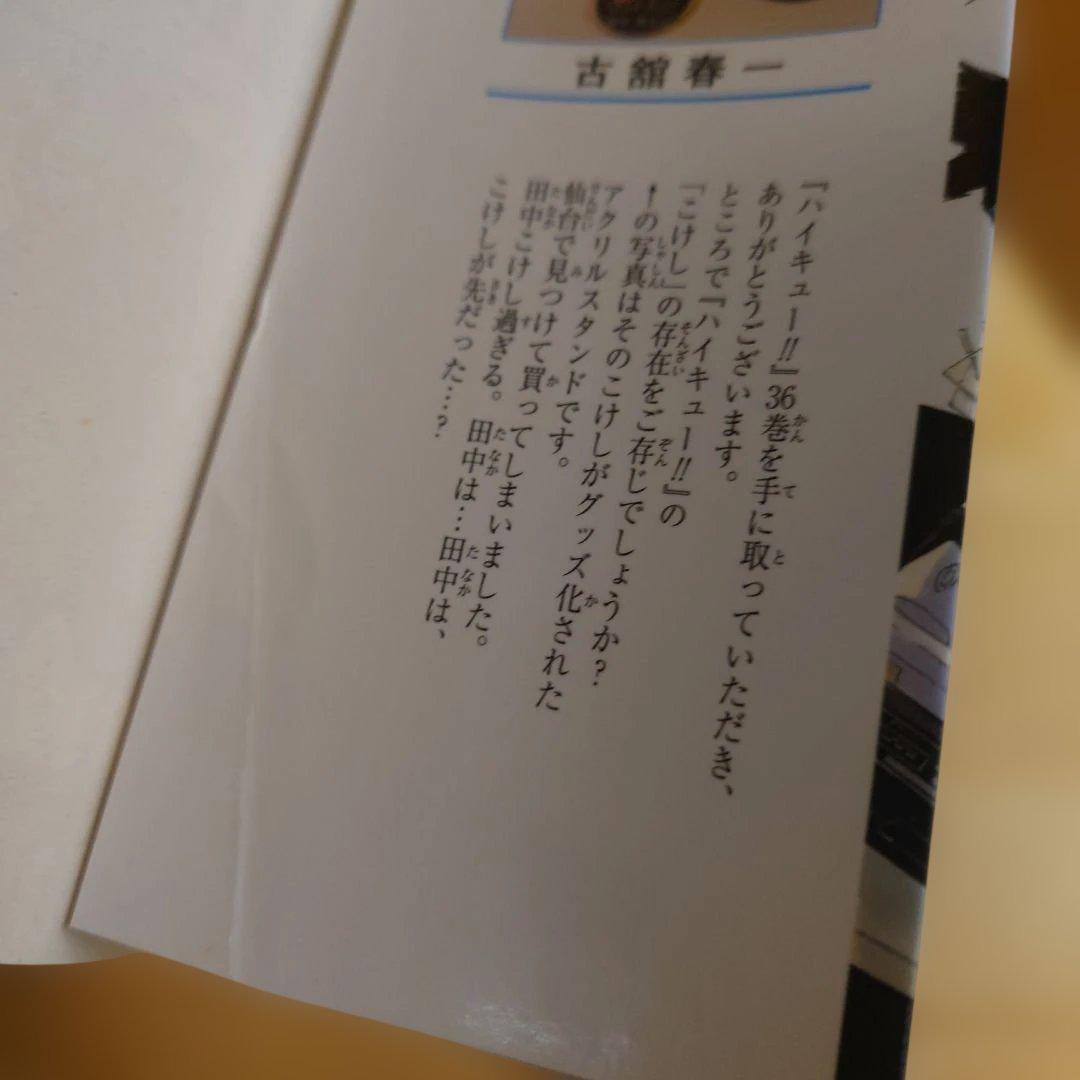 古舘春一
『ハイキュー!!』36巻を手に取っていただき、
ありがとうございます。
ところで『ハイキュー!!』の
「こけし」の存在をご存じでしょうか?
↑の写真はそのこけしがグッズ化された
アクリルスタンドです。
仙台で見つけて買ってしまいました。
田中こけし過ぎる。田中は…田中は、
こけしが先だった…?